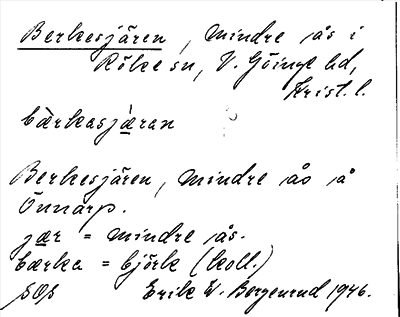 Berkesjären, mindre ås i
Röke sn, V. Göinge hd,
Krist. l.
bàrkasjæran
Berkesjären, mindre ås å
Önnarp.
jær = mindre ås.
bærka = björk (koll.)
Erik W. Bergenrud 1946.